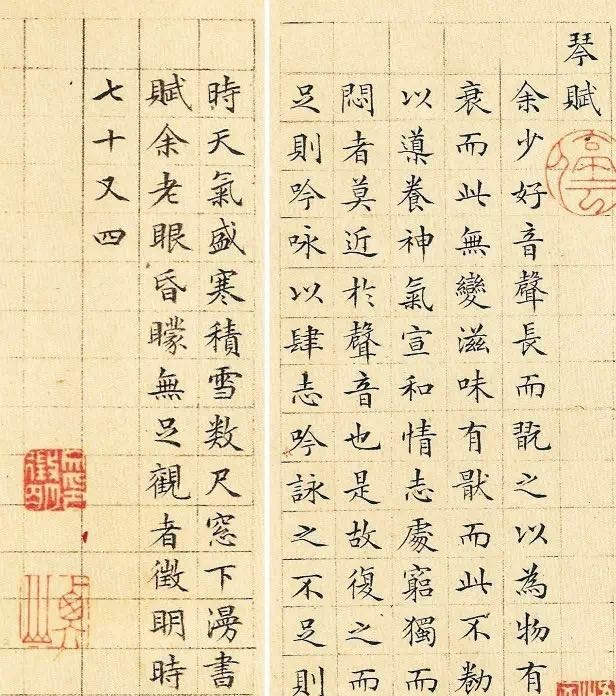 琴賦
停雲
余少好音聲長而翫之以為物有
衰而此無變滋味有猒而此不勌
以導養神氣宣和情志處窮獨而
悶者莫近於聲音也是故復之而
足則吟咏以肆志吟詠之不足則
時天氣盛寒積雪数尺窓下漫書
賦余老眼昏矇無足觀者徵明時
七十又四
文徵明印
衡山